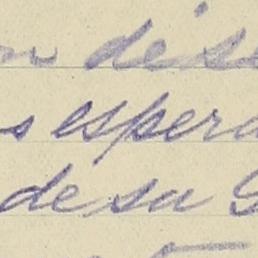 n dese
s espera
de su G